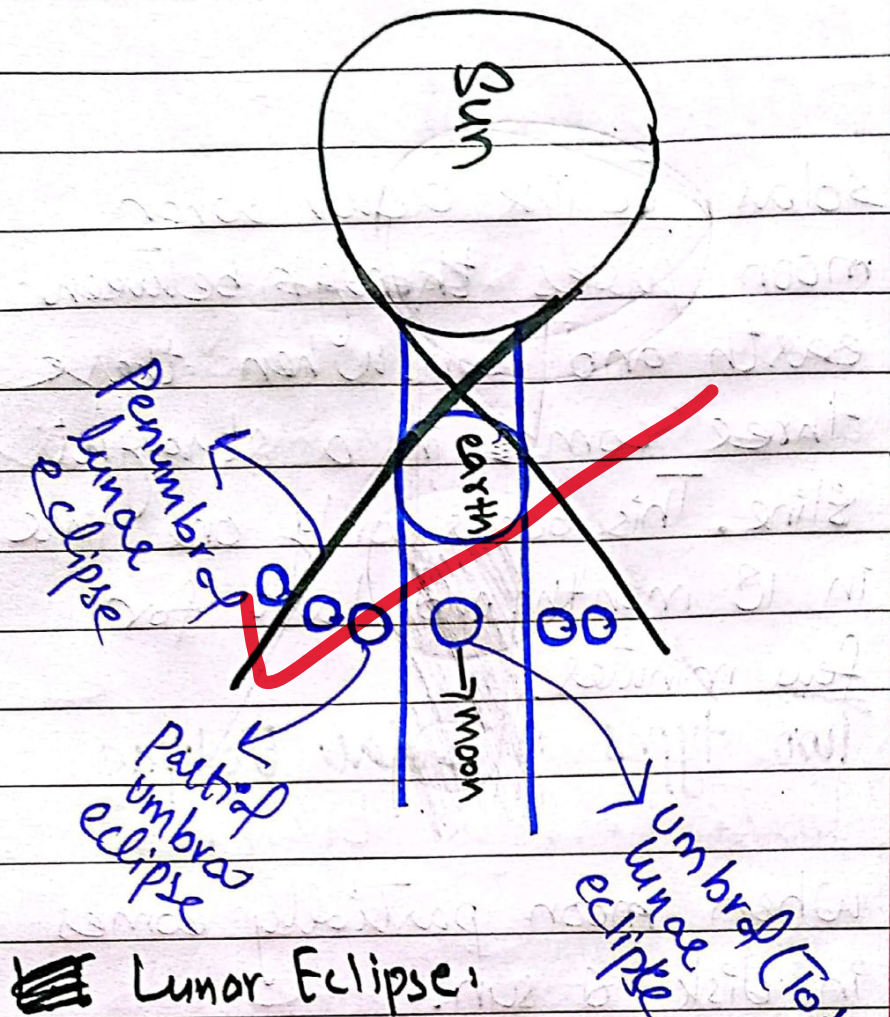 Sun
earth
Penumbral
lunae
eclipse
moon
Partial
umbra
eclipse
umbral (To
lunae
eclipse
Lunar Eclipse: